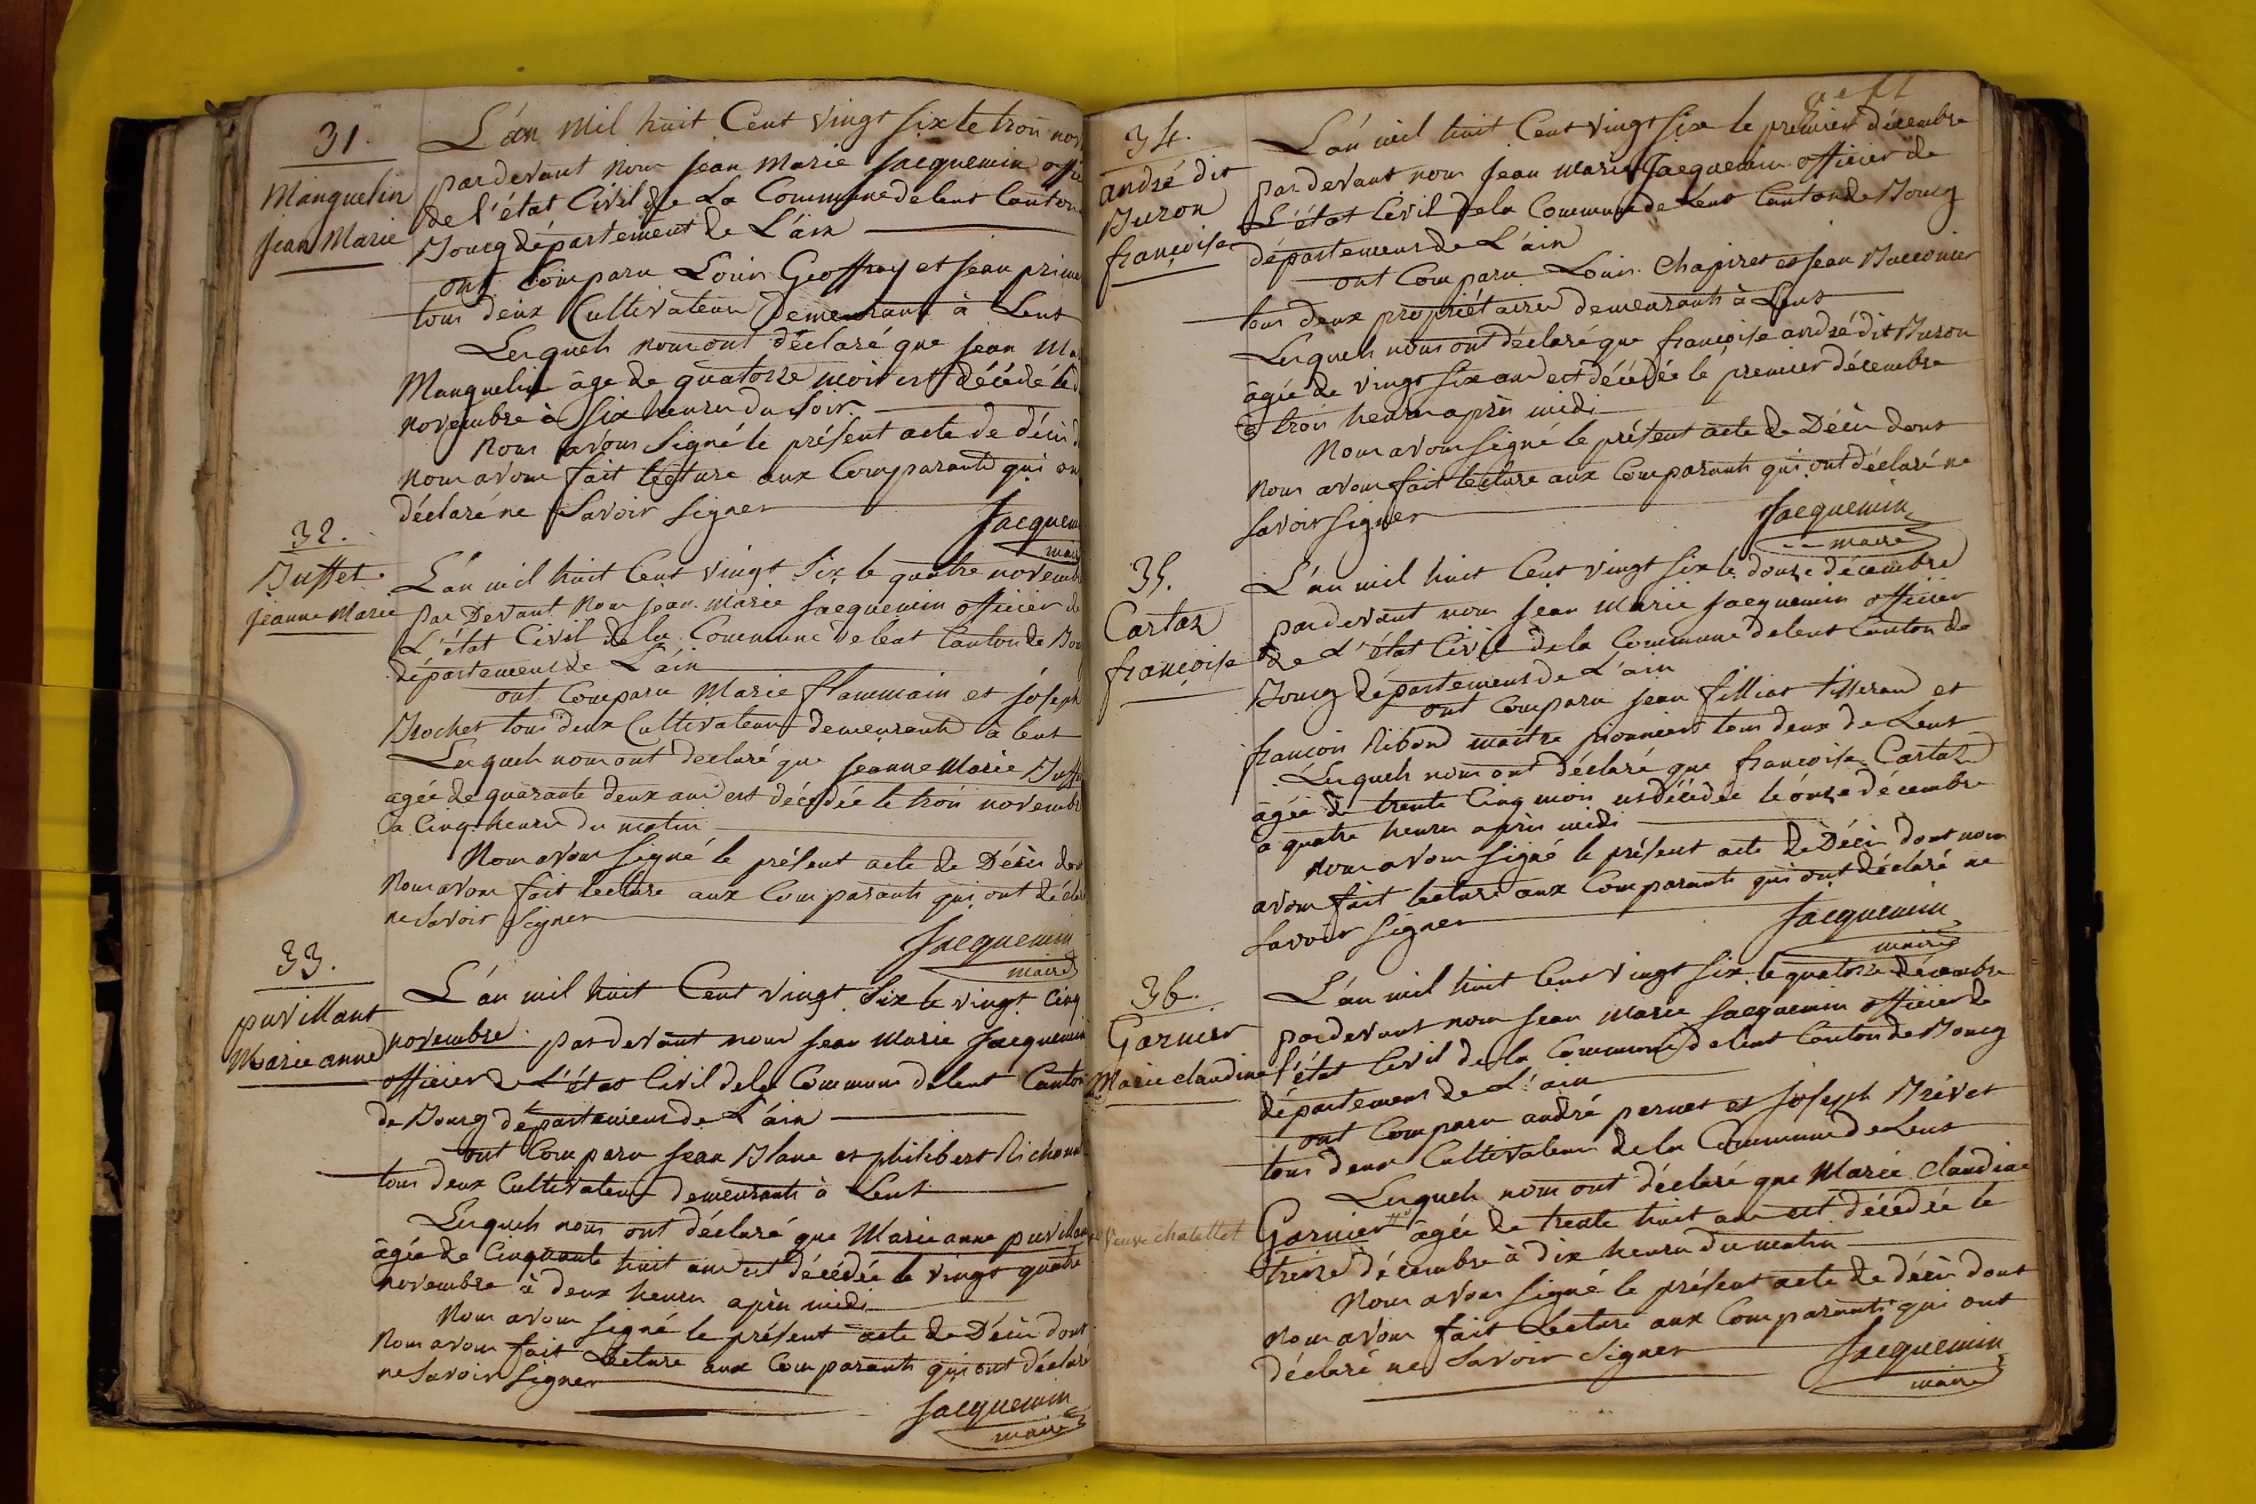 31.
Manguelin
Jean Marie
L'an mil huit Cent vingt six le trois nov
pardevant nous jean Marie Jacquemin offic
de l'état Civil de La Commune de lent Canton
Bourg département de L'ain
ont Comparu Louis Geoffray et jean
tous deux Cultivateurs demeurant à Lent
Lesquels nous ont déclaré que jean Ma
Manguelin âge de quatorze mois est décédé le d
novembre à Six heures du Soir.
Nous avons Signé le présent acte de décès d
nous avons fait lecture aux Comparants qui on
déclaré ne Savoir Signer
Jacquem
mair
32.
Buffet
jeanne Marie
L'an mil huit Cent vingt Six le quatre novemb
par Devant nous jean marie Jacquemin officier de
L'état Civil de la Commune de lent Canton de Bou
département de L'ain
ont Comparu Marie flammain et joseph
Brochet tous deux Cultivateurs demeurants à lent
Lesquels nous ont declaré que jeanne Marie Buffe
agée de quarante deux ans est décédée le trois novemb
à Cinq heures du matin
Nous avons Signé le présent acte de Décès don
Nous avons fait lecture aux Comparants qui ont décla
ne Savoir Signer
Jacquemin
maire
33.
puvillant
Marie anne
L'an mil huit Cent vingt Six le vingt Cinq
novembre pardevant nous jean Marie Jacquemin
officier de L'état Civil de la Commune de lent Canton
de Bourg département de L'ain
ont Comparu jean Blanc et philibert Richon
tous deux Cultivateurs demeurants à Lent
Lesquels nous ont déclaré que Marie anne puvillan
âgée de Cinquante huit ans est décédée le vingt quatre
novembre à deux heures après midi
Nous avons signé le présent acte de Décès dont
Nous avons fait Lecture aux Comparants qui ont déclaré
ne Savoir Signer
Jacquemin
maire
34.
andré dit
Buron
françoise
L'an mil huit Cent vingt Six le premier décembre
par devant nous jean Marie Jacquemin officier de
L'état Civil de la Commune de Lent Canton de Bourg
département de L'ain
ont Comparu Louis Chapiret et jean
tous deux propriétaires demeurants à Lent
Lesquels nous ont déclaré que françoise andré dit Buron
âgée de vingt Six ans est décédée le premier décembre
à trois heures après midi
Nous avons signé le présent acte de Décès dont
nous avons fait lecture aux Comparants qui ont déclaré ne
Savoir Signer
Jacquemin
maire
35.
Cartaz
françoise
L'an mil huit Cent vingt Six le douze décembre
pardevant nous jean Marie Jacquemin officier
de L'état Civil de la Commune de lent Canton de
Bourg département de L'ain
ont Comparu jean filliat tisserand et
françois Ribond maitre pionnier tous deux de Lent
Lesquels nous ont déclaré que françoise Cartaz
âgée de trente Cinq mois est décédée le onze décembre
à quatre heures après midi
Nous avons Signé le présent acte de Décès dont nous
avons fait lecture aux Comparants qui ont déclaré ne
Savoir Signer
Jacquemin
maire
36.
Garnier
Marie claudine
L'an mil huit Cent vingt Six le quatorze décembre
pardevant nous jean Marie Jacquemin officier de
l'état Civil de la Commune de lent Canton de Bourg
département de L'ain
ont Comparu andré pernet et joseph Brévet
tous deux Cultivateurs de la Commune de Lent
Lesquels nous ont déclaré que Marie Claudine
veuve chatellet
Garnier âgée de trente huit ans est décédée le
treize décembre à dix heures du matin
Nous avons signé le présent acte de décès dont
nous avons fait Lecture aux Comparants qui ont
déclaré ne Savoir Signer
Jacquemin
maire